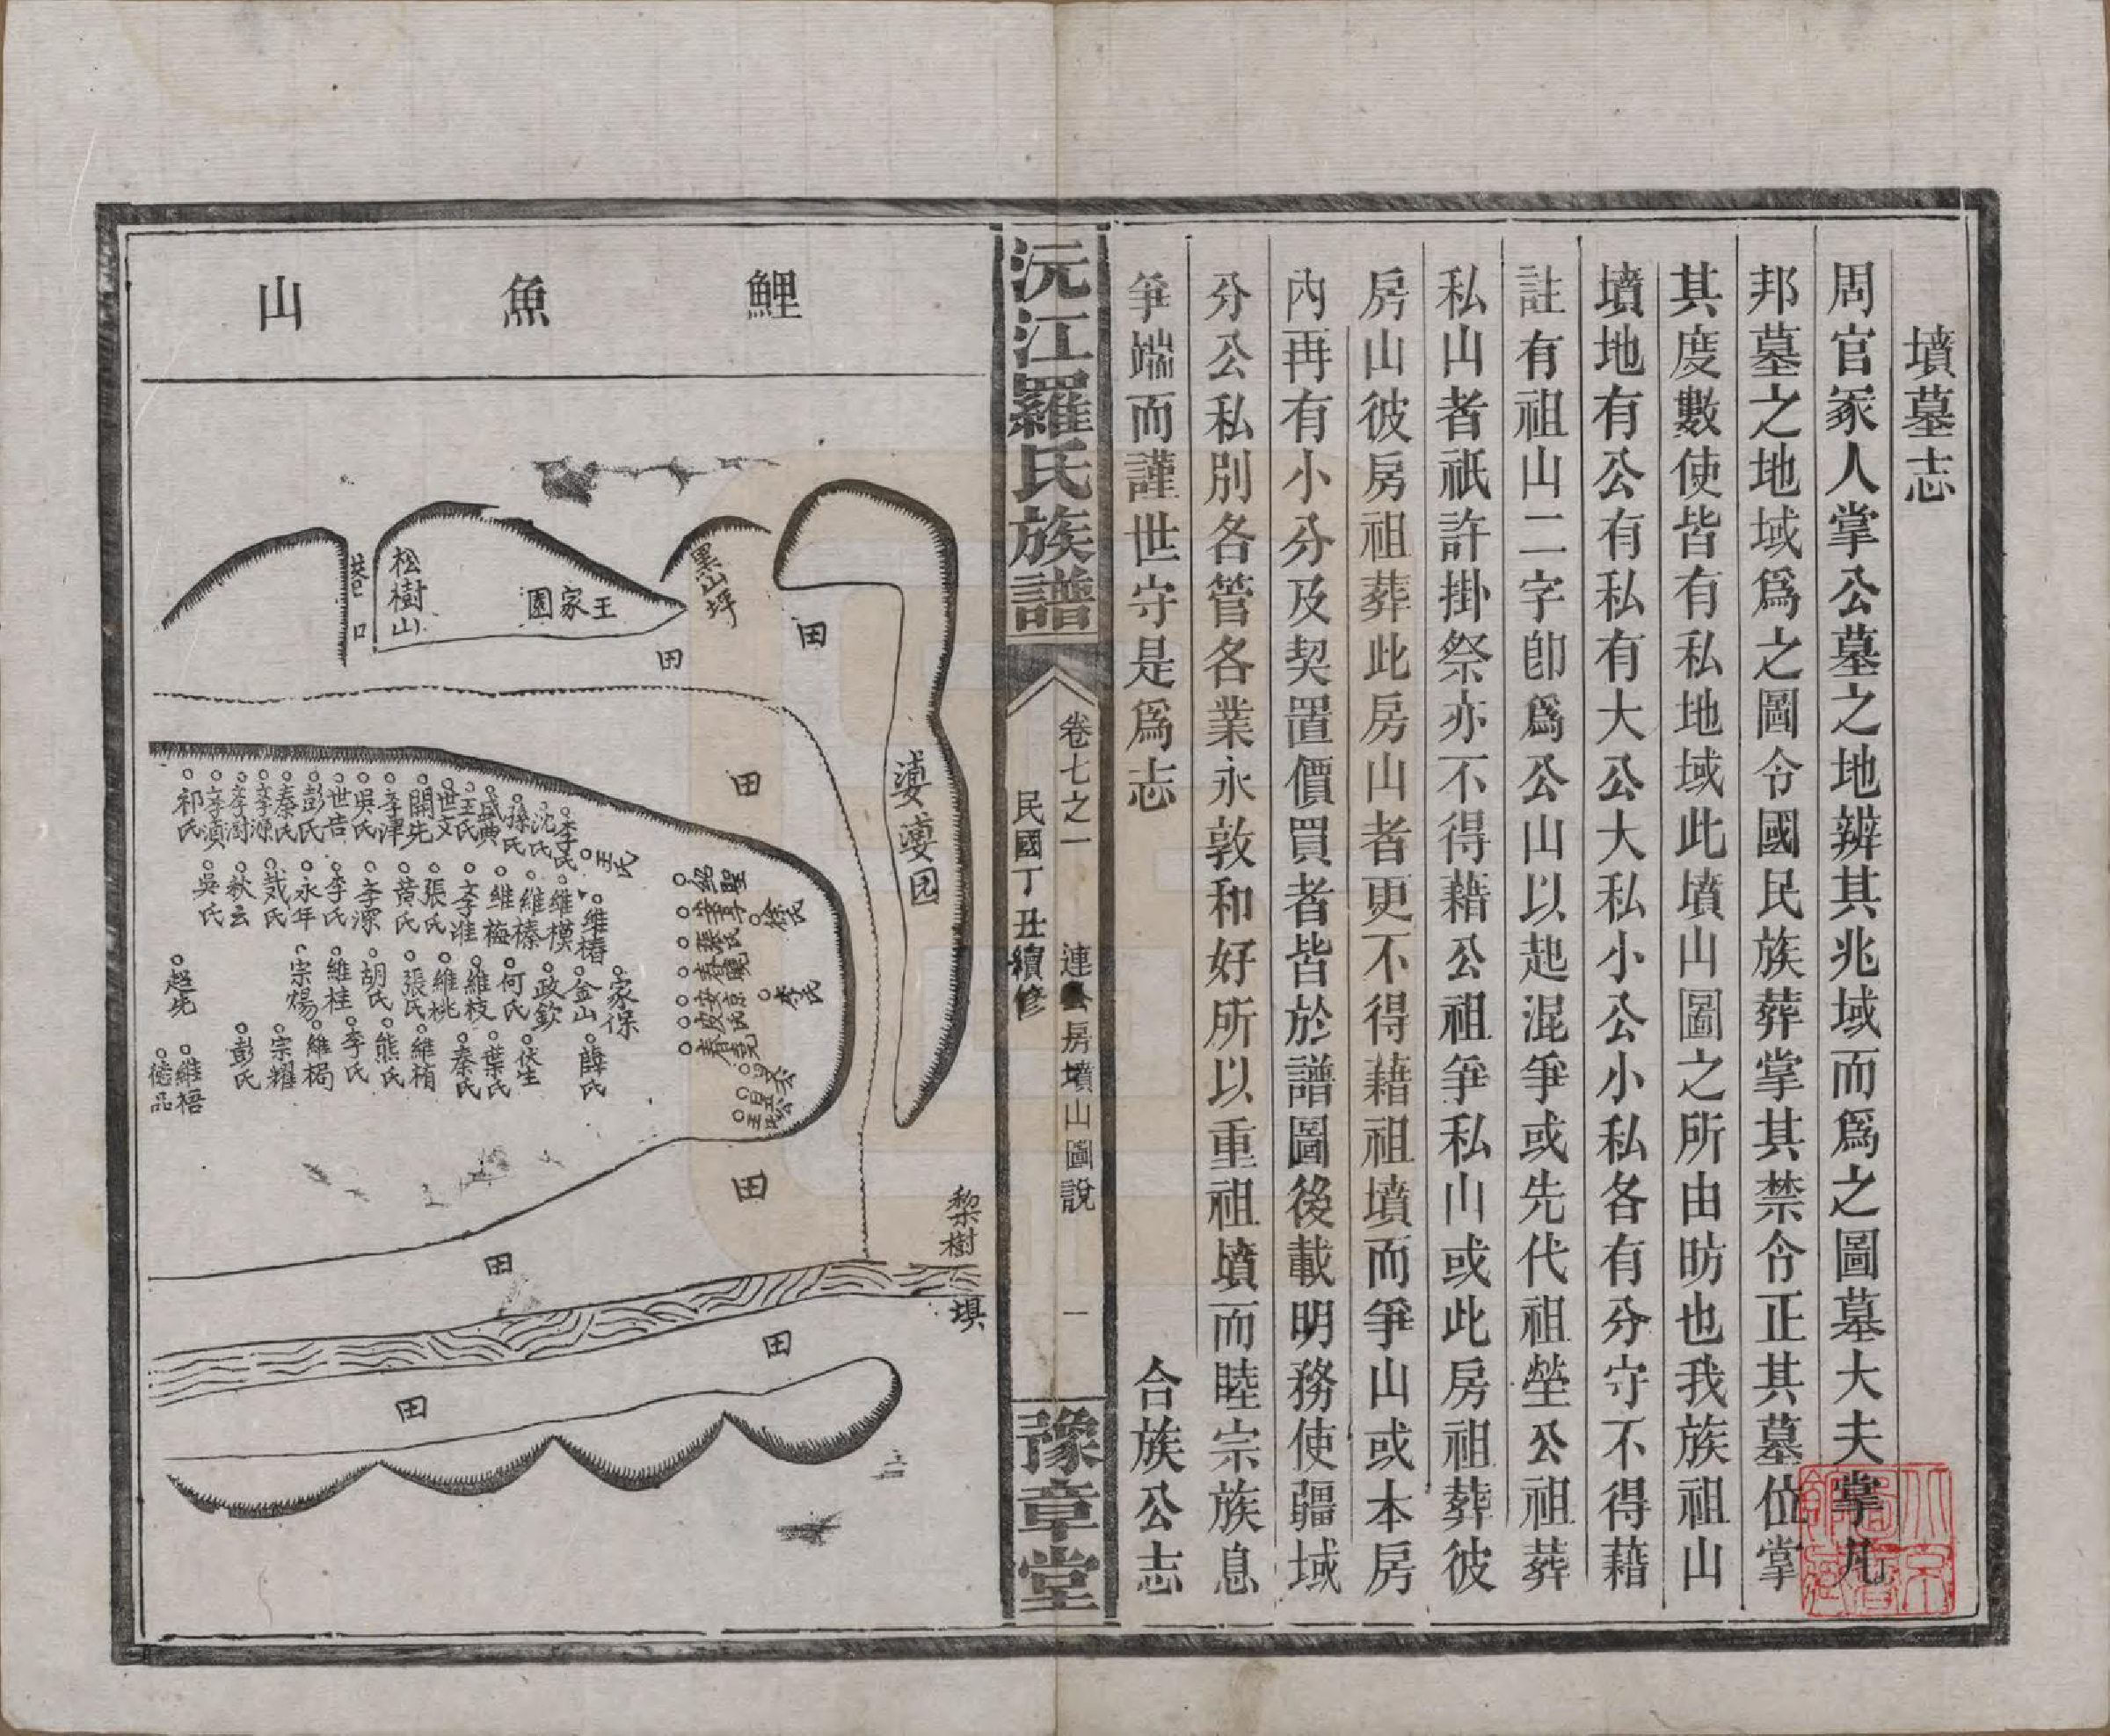 墳墓志
周官冢人掌公墓之地辨其兆域而爲之圖墓大夫掌凡
邦墓之地域爲之圖令國民族葬掌其禁令正其墓位掌
其度數使皆有私地域此墳山圖之所由昉也我族祖山
墳地有公有私有大公大私小公小私各有分守不得藉
註有祖山二字卽爲公山以起混爭或先代祖塋公祖葬
私山者祇許掛祭亦不得藉公祖爭私山或此房祖葬彼
房山彼房祖葬此房山者更不得藉祖墳而爭山或本房
內再有小分及契置價買者皆於譜圖後載明務使疆域
分公私別各管各業永敦和好所以重祖墳而睦宗族息
爭端而謹世守是爲志
合族公志
沅江羅氏族譜
卷七之一
連公房墳山圖說
一
民國丁丑續修
豫章堂
鯉魚山
黑山坪
王家園
松樹山
巷口
田
田
田
田
田
田
田
黎樹垻
李氏
沈氏
孫氏
盛典
王氏
世文
開先
孝澤
吳氏
世吉
彭氏
秦氏
孝源
孝澍
孝滇
祁氏
王氏
維椿
維模
維榛
維梅
孝淮
張氏
黃氏
孝深
李氏
永年
秋云
吳氏
家保
金山
政欽
何氏
維枝
維桃
張氏
胡氏
維桂
宗煬
超先
薛氏
伏生
葉氏
秦氏
維楕
熊氏
李氏
維楬
宗耀
彭氏
維梧
德品
徐氏
李氏